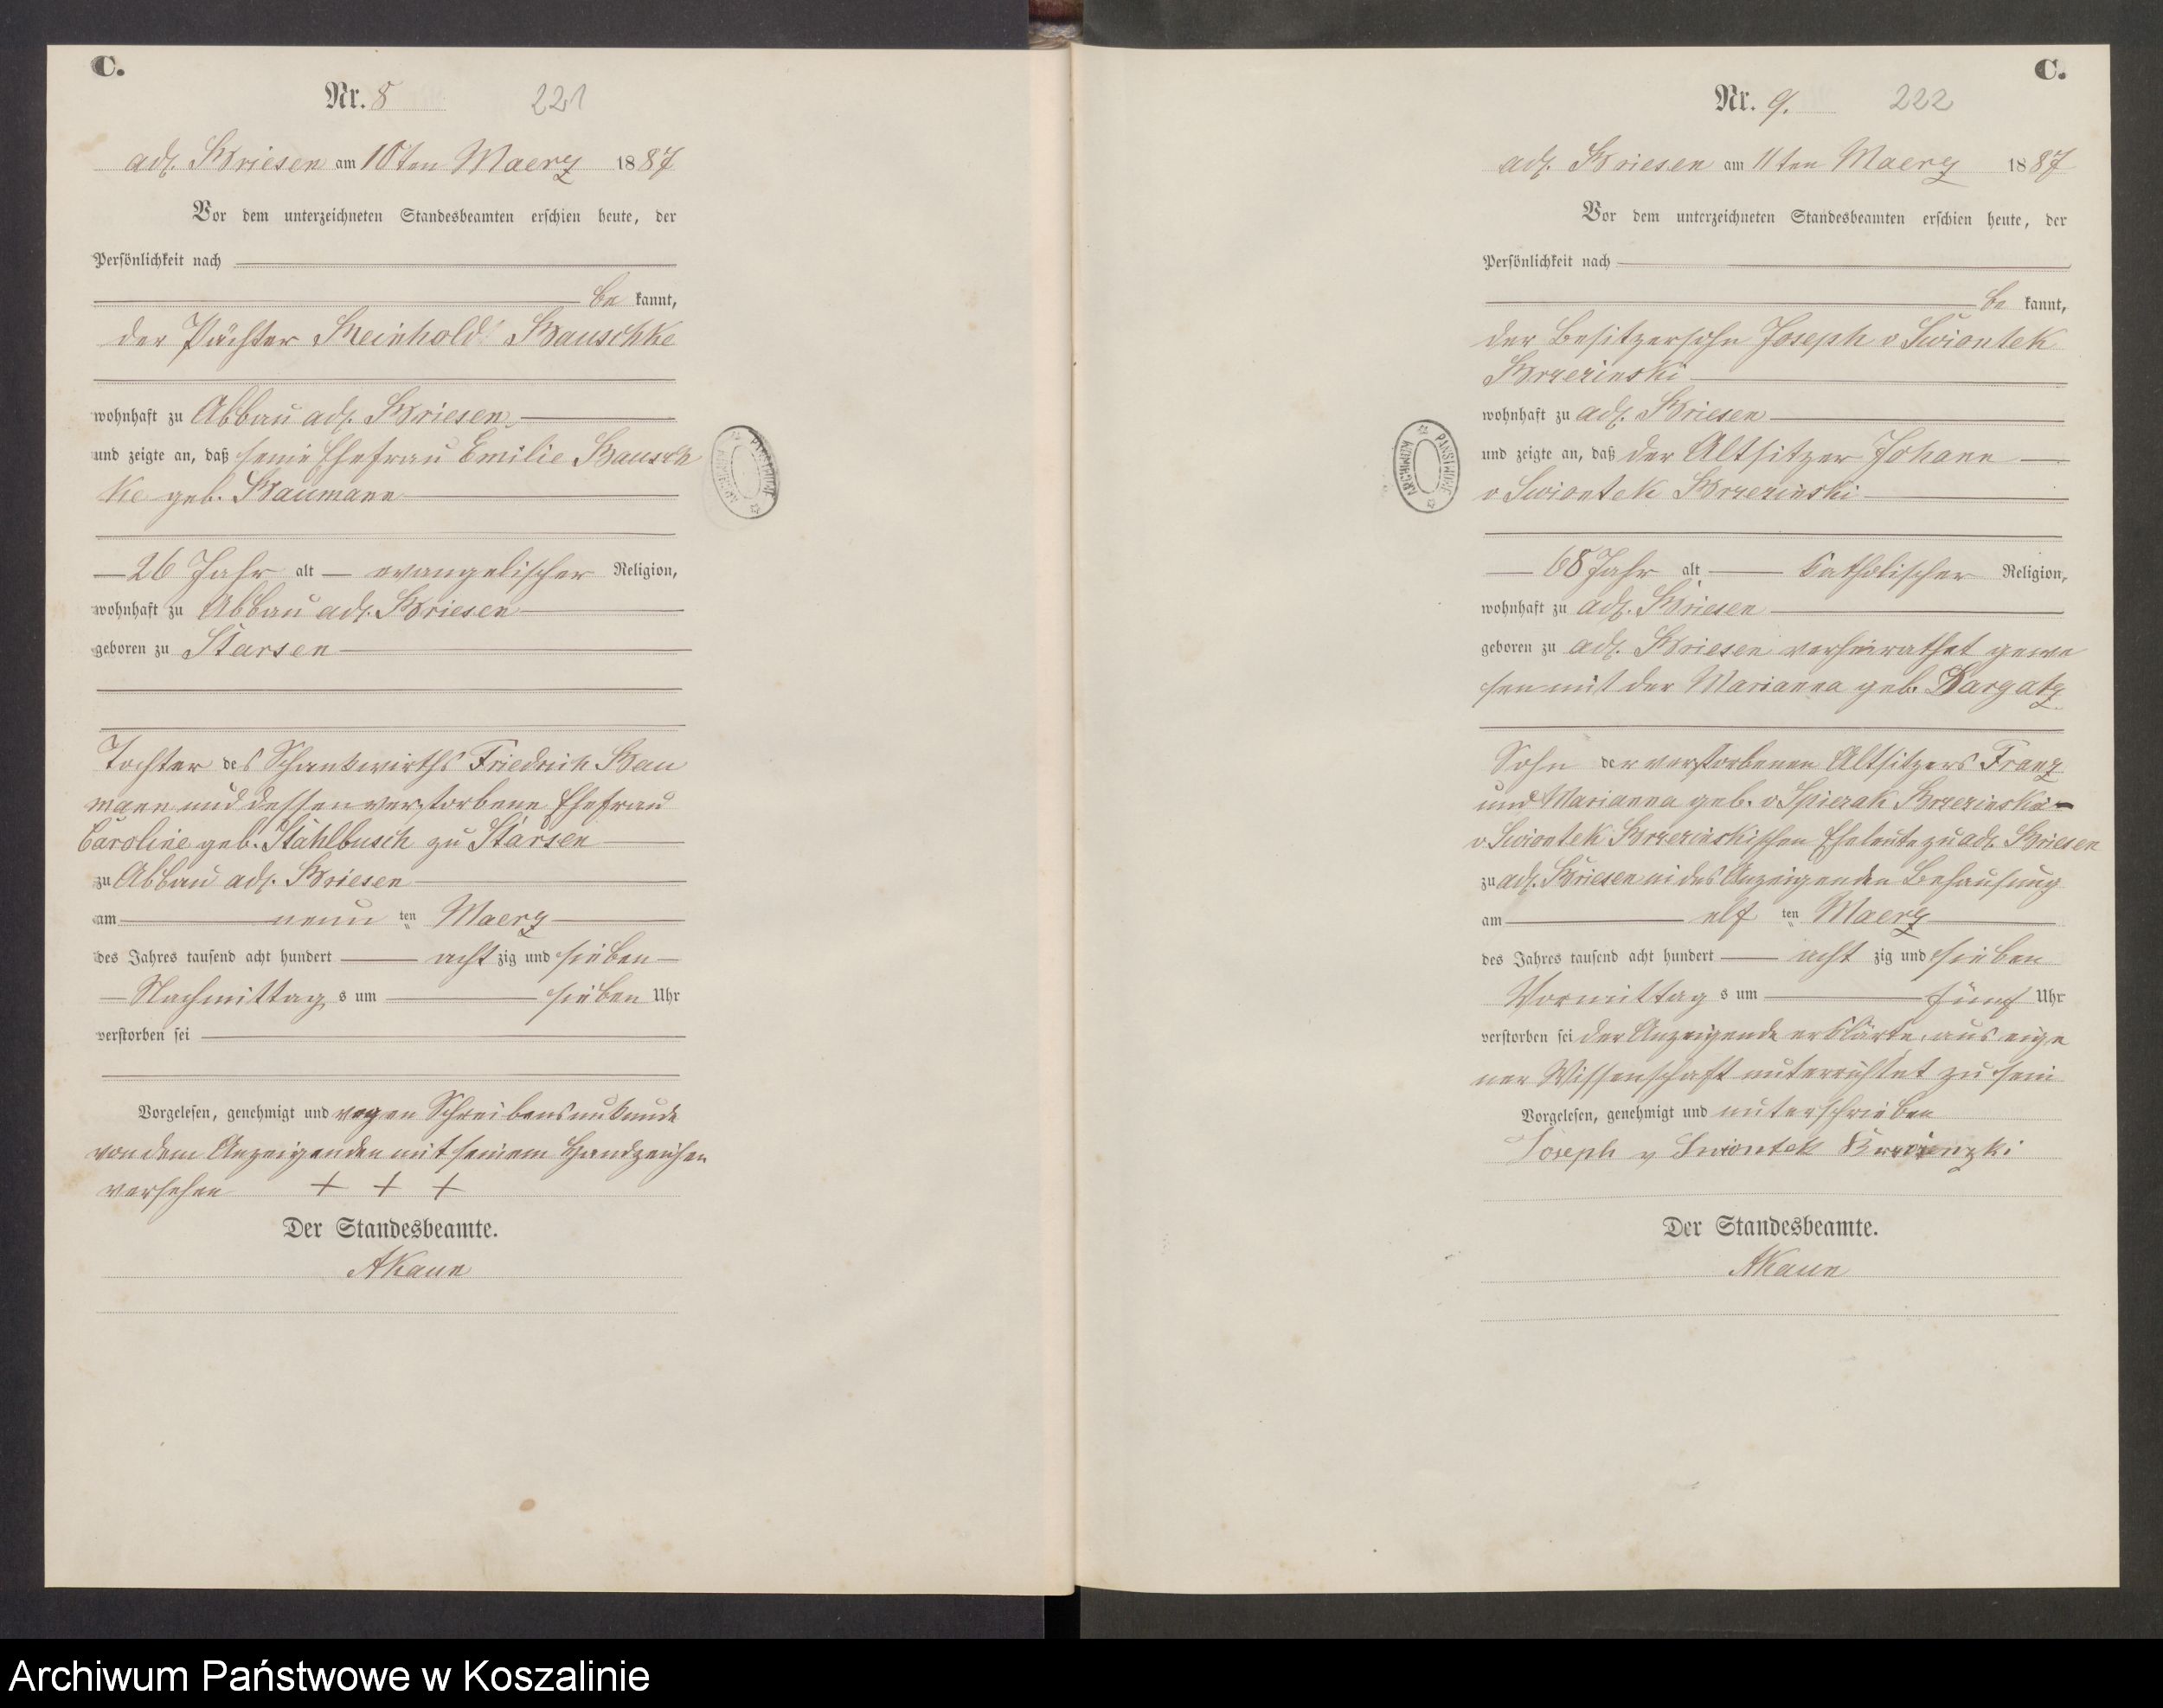 C.
Nr. 8 221
adl. Briesen am 10ten Maerz 1887
Vor dem unterzeichneten Standesbeamten erschien heute, der
Persönlichkeit nach
be kannt,
der Pächter Reinhold Bauschke
wohnhaft zu Abbau adl. Briesen
und zeigte an, daß seine Ehefrau Emilie Bausch
ke geb. Baumann
26 Jahr alt evangelischer Religion,
wohnhaft zu Abbau adl. Briesen
geboren zu Starsen
Tochter des Schankwirths Friedrich Bau
mann und dessen verstorbene Ehefrau
Caroline geb. Stahlbusch zu Starsen
zu Abbau adl. Briesen
am neun ten Maerz
des Jahres tausend acht hundert acht zig und sieben
Nachmittag s um sieben Uhr
verstorben sei
Vorgelesen, genehmigt und wegen Schreibensunkunde
von dem Anzeigenden mit seinem Handzeichen
versehen + + +
Der Standesbeamte.
AKaun
C.
Nr. 9. 222
adl. Briesen am 11ten Maerz 1887
Vor dem unterzeichneten Standesbeamten erschien heute, der
Persönlichkeit nach
be kannt,
der Besitzersohn Joseph v Swiontek
Brzezinski
wohnhaft zu adl. Briesen
und zeigte an, daß der Altsitzer Johann
v Swiontek Brzezinski
68 Jahr alt katholischer Religion,
wohnhaft zu adl. Briesen
geboren zu adl. Briesen verheirathet gewe
sen mit der Marianna geb. Dargatz
Sohn der verstorbenen Altsitzers Franz
und Marianna geb. v Spiczak Brzezinski
v Swiontek Brzezinskischen Eheleute zu adl. Briesen
zu adl. Briesen in des Anzeigenden Behausung
am elf ten Maerz
des Jahres tausend acht hundert acht zig und sieben
Vormittag s um fünf Uhr
verstorben sei der Anzeigende erklärte, aus eige
ner Wissenschaft unterrichtet zu sein
Vorgelesen, genehmigt und unterschrieben
Joseph v Swiontek
Der Standesbeamte.
AKaun
Archiwum Państwowe w Koszalinie